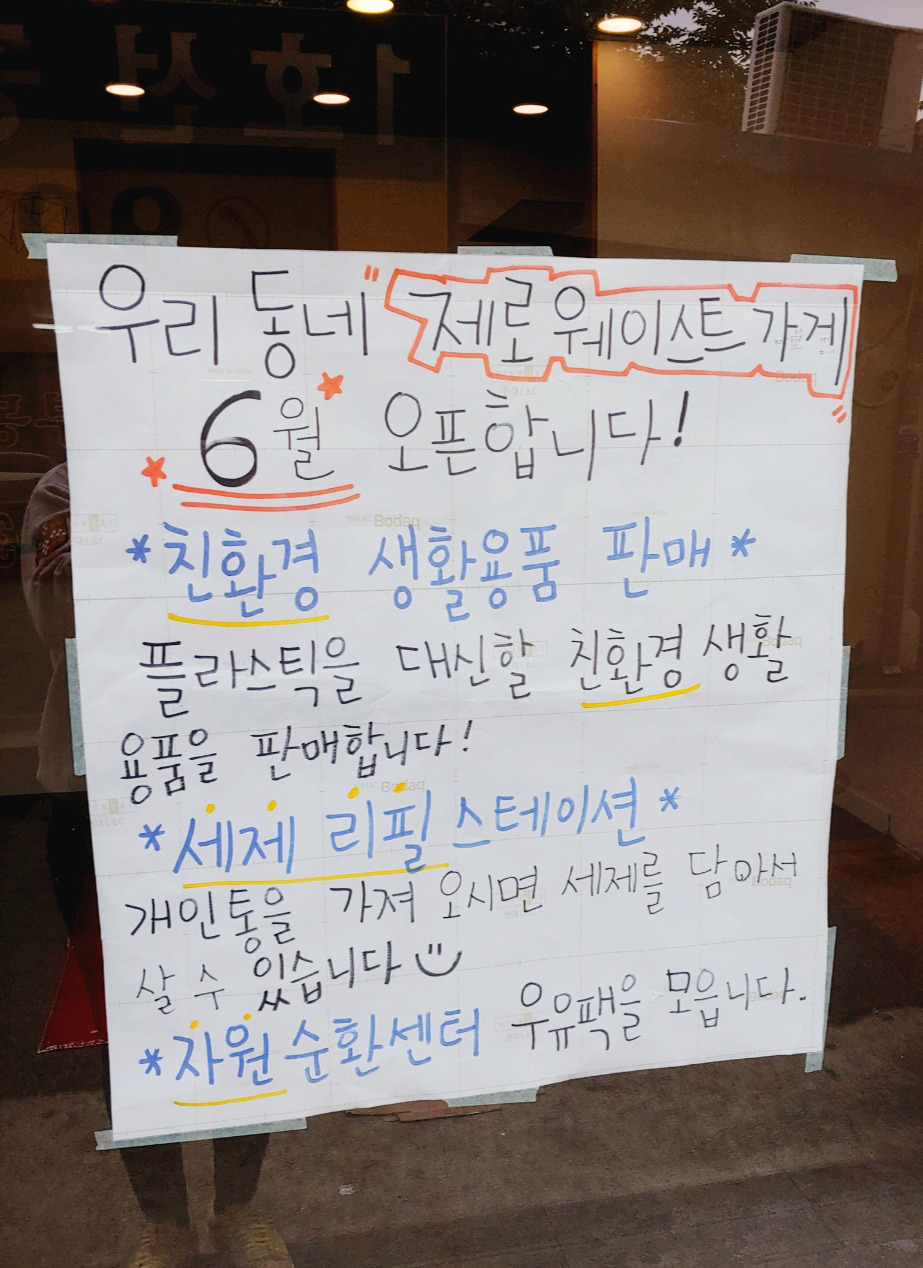 우리 동네 "제로웨이스트 가게"
6월 오픈합니다!
*친환경 생활용품 판매*
플라스틱을 대신할 친환경 생활
용품을 판매합니다!
*세제 리필 스테이션*
개인통을 가져 오시면 세제를 담아서
살 수 있습니다
*자원순환센터 우유팩을 모읍니다.
Bodaq
Bodaq
Bodaq
Bodaq
Bodaq